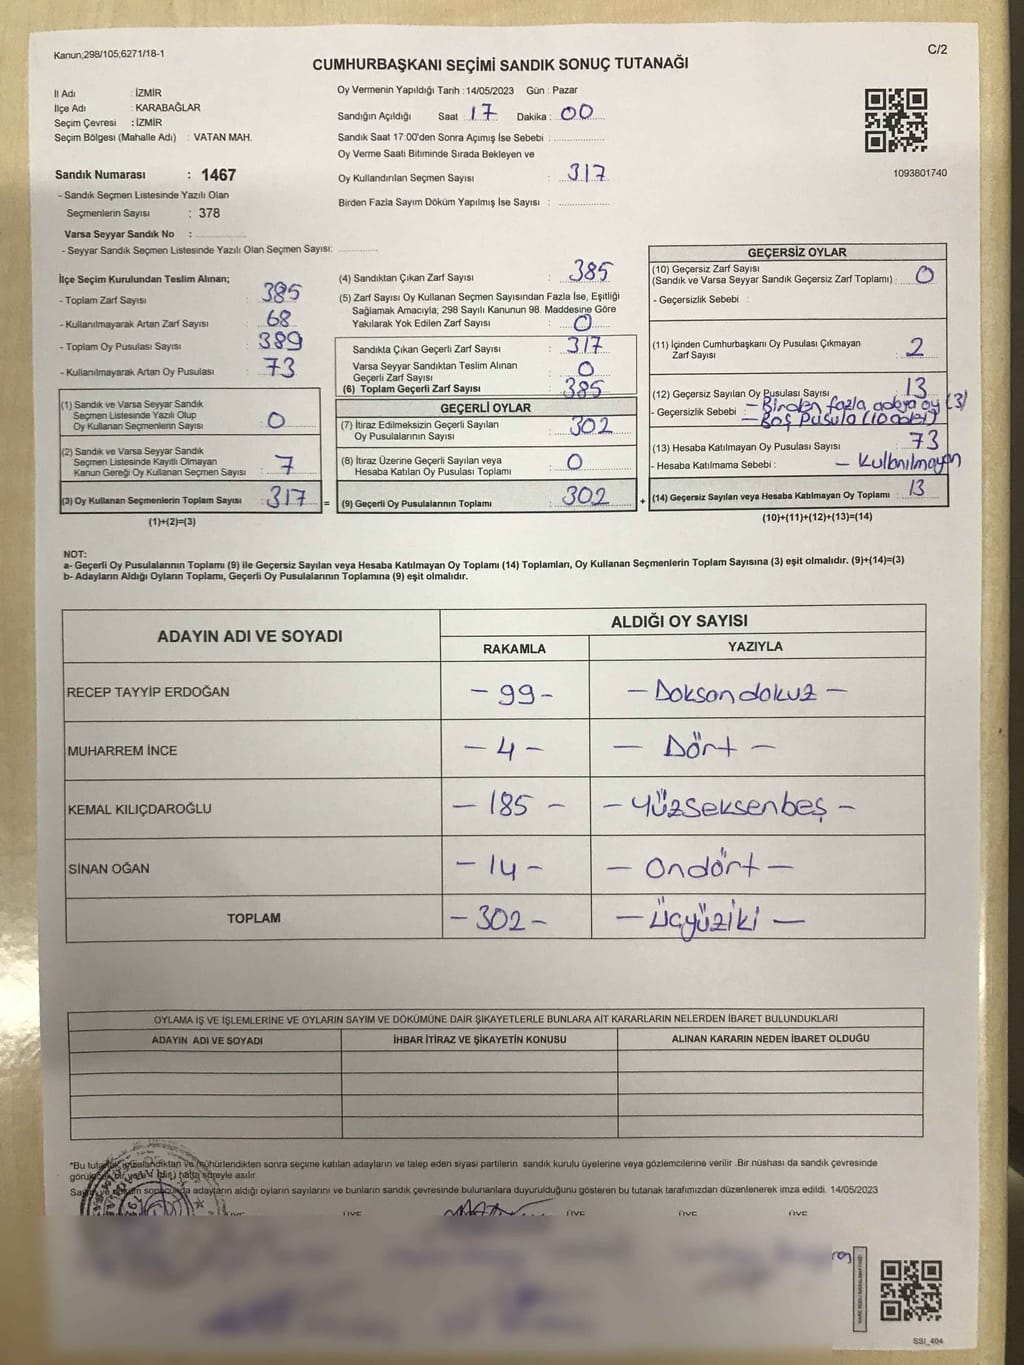 Kanun;298/105;6271/18-1
C/2
CUMHURBAŞKANI SEÇİMİ SANDIK SONUÇ TUTANAĞI
İl Adı : İZMİR
İlçe Adı : KARABAĞLAR
Seçim Çevresi : İZMİR
Seçim Bölgesi (Mahalle Adı) : VATAN MAH.
Oy Vermenin Yapıldığı Tarih : 14/05/2023 Gün : Pazar
Sandığın Açıldığı Saat : 17 Dakika : 00
Sandık Saat 17:00'den Sonra Açımış İse Sebebi :
Oy Verme Saati Bitiminde Sırada Bekleyen ve
Oy Kullandırılan Seçmen Sayısı : 317
Birden Fazla Sayım Döküm Yapılmış İse Sayısı :
1093801740
Sandık Numarası : 1467
- Sandık Seçmen Listesinde Yazılı Olan
Seçmenlerin Sayısı : 378
Varsa Seyyar Sandık No :
- Seyyar Sandık Seçmen Listesinde Yazılı Olan Seçmen Sayısı:
İlçe Seçim Kurulundan Teslim Alınan;
- Toplam Zarf Sayısı : 385
- Kullanılmayarak Artan Zarf Sayısı : 68
- Toplam Oy Pusulası Sayısı : 389
- Kullanılmayarak Artan Oy Pusulası : 73
(1) Sandık ve Varsa Seyyar Sandık
Seçmen Listesinde Yazılı Olup
Oy Kullanan Seçmenlerin Sayısı : 0
(2) Sandık ve Varsa Seyyar Sandık
Seçmen Listesinde Kayıtlı Olmayan
Kanun Gereği Oy Kullanan Seçmen Sayısı : 7
(3) Oy Kullanan Seçmenlerin Toplam Sayısı : 317 =
(1)+(2)=(3)
(4) Sandıktan Çıkan Zarf Sayısı : 385
(5) Zarf Sayısı Oy Kullanan Seçmen Sayısından Fazla İse, Eşitliği
Sağlamak Amacıyla; 298 Sayılı Kanunun 98. Maddesine Göre
Yakılarak Yok Edilen Zarf Sayısı : 0
Sandıkta Çıkan Geçerli Zarf Sayısı : 317
Varsa Seyyar Sandıktan Teslim Alınan
Geçerli Zarf Sayısı : 0
(6) Toplam Geçerli Zarf Sayısı : 385
GEÇERLİ OYLAR
(7) İtiraz Edilmeksizin Geçerli Sayılan
Oy Pusulalarının Sayısı : 302
(8) İtiraz Üzerine Geçerli Sayılan veya
Hesaba Katılan Oy Pusulası Toplamı : 0
(9) Geçerli Oy Pusulalarının Toplamı : 302 +
GEÇERSİZ OYLAR
(10) Geçersiz Zarf Sayısı
(Sandık ve Varsa Seyyar Sandık Geçersiz Zarf Toplamı) : 0
- Geçersizlik Sebebi :
(11) İçinden Cumhurbaşkanı Oy Pusulası Çıkmayan
Zarf Sayısı : 2
(12) Geçersiz Sayılan Oy Pusulası Sayısı : 13
- Geçersizlik Sebebi : - Birden fazla adaya oy (3)
- Boş Pusula (10 adet)
(13) Hesaba Katılmayan Oy Pusulası Sayısı : 73
- Hesaba Katılmama Sebebi : - Kullanılmayan
(14) Geçersiz Sayılan veya Hesaba Katılmayan Oy Toplamı : 13
(10)+(11)+(12)+(13)=(14)
NOT:
a- Geçerli Oy Pusulalarının Toplamı (9) ile Geçersiz Sayılan veya Hesaba Katılmayan Oy Toplamı (14) Toplamları, Oy Kullanan Seçmenlerin Toplam Sayısına (3) eşit olmalıdır. (9)+(14)=(3)
b- Adayların Aldığı Oyların Toplamı, Geçerli Oy Pusulalarının Toplamına (9) eşit olmalıdır.
ADAYIN ADI VE SOYADI
ALDIĞI OY SAYISI
RAKAMLA YAZIYLA
RECEP TAYYİP ERDOĞAN - 99 - - Doksan dokuz -
MUHARREM İNCE - 4 - - Dört -
KEMAL KILIÇDAROĞLU - 185 - - Yüzseksenbeş -
SİNAN OĞAN - 14 - - Ondört -
TOPLAM - 302 - - Üçyüziki -
OYLAMA İŞ VE İŞLEMLERİNE VE OYLARIN SAYIM VE DÖKÜMÜNE DAİR ŞİKAYETLERLE BUNLARA AİT KARARLARIN NELERDEN İBARET BULUNDUKLARI
ADAYIN ADI VE SOYADI İHBAR İTİRAZ VE ŞİKAYETİN KONUSU ALINAN KARARIN NEDEN İBARET OLDUĞU
"Bu tutanak imzalandıktan ve mühürlendikten sonra seçime katılan adayların ve talep eden siyasi partilerin sandık kurulu üyelerine veya gözlemcilerine verilir .Bir nüshası da sandık çevresinde
hafta süreyle asılır
adayların aldığı oyların sayılarını ve bunların sandık çevresinde bulunanlara duyurulduğunu gösteren bu tutanak tarafımızdan düzenlenerek imza edildi. 14/05/2023
ÜYE ÜYE ÜYE ÜYE
SSİ_404